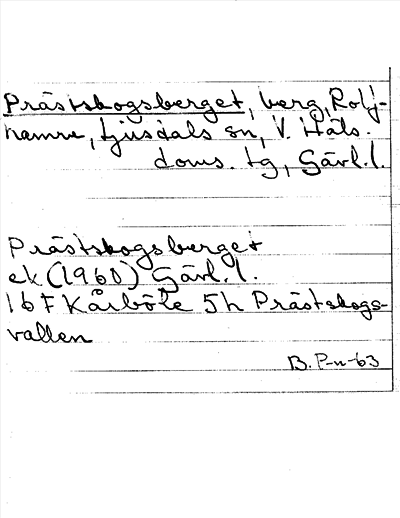 Prästskogsberget, berg, Rolf-
hamre, Ljusdals sn, V. Häls.
doms. tg, Gävl.l.
Prästskogsberget
ek (1960) Gävl.l.
16F Kårböle 5h Prästskogs-
vallen
B. P-n-63